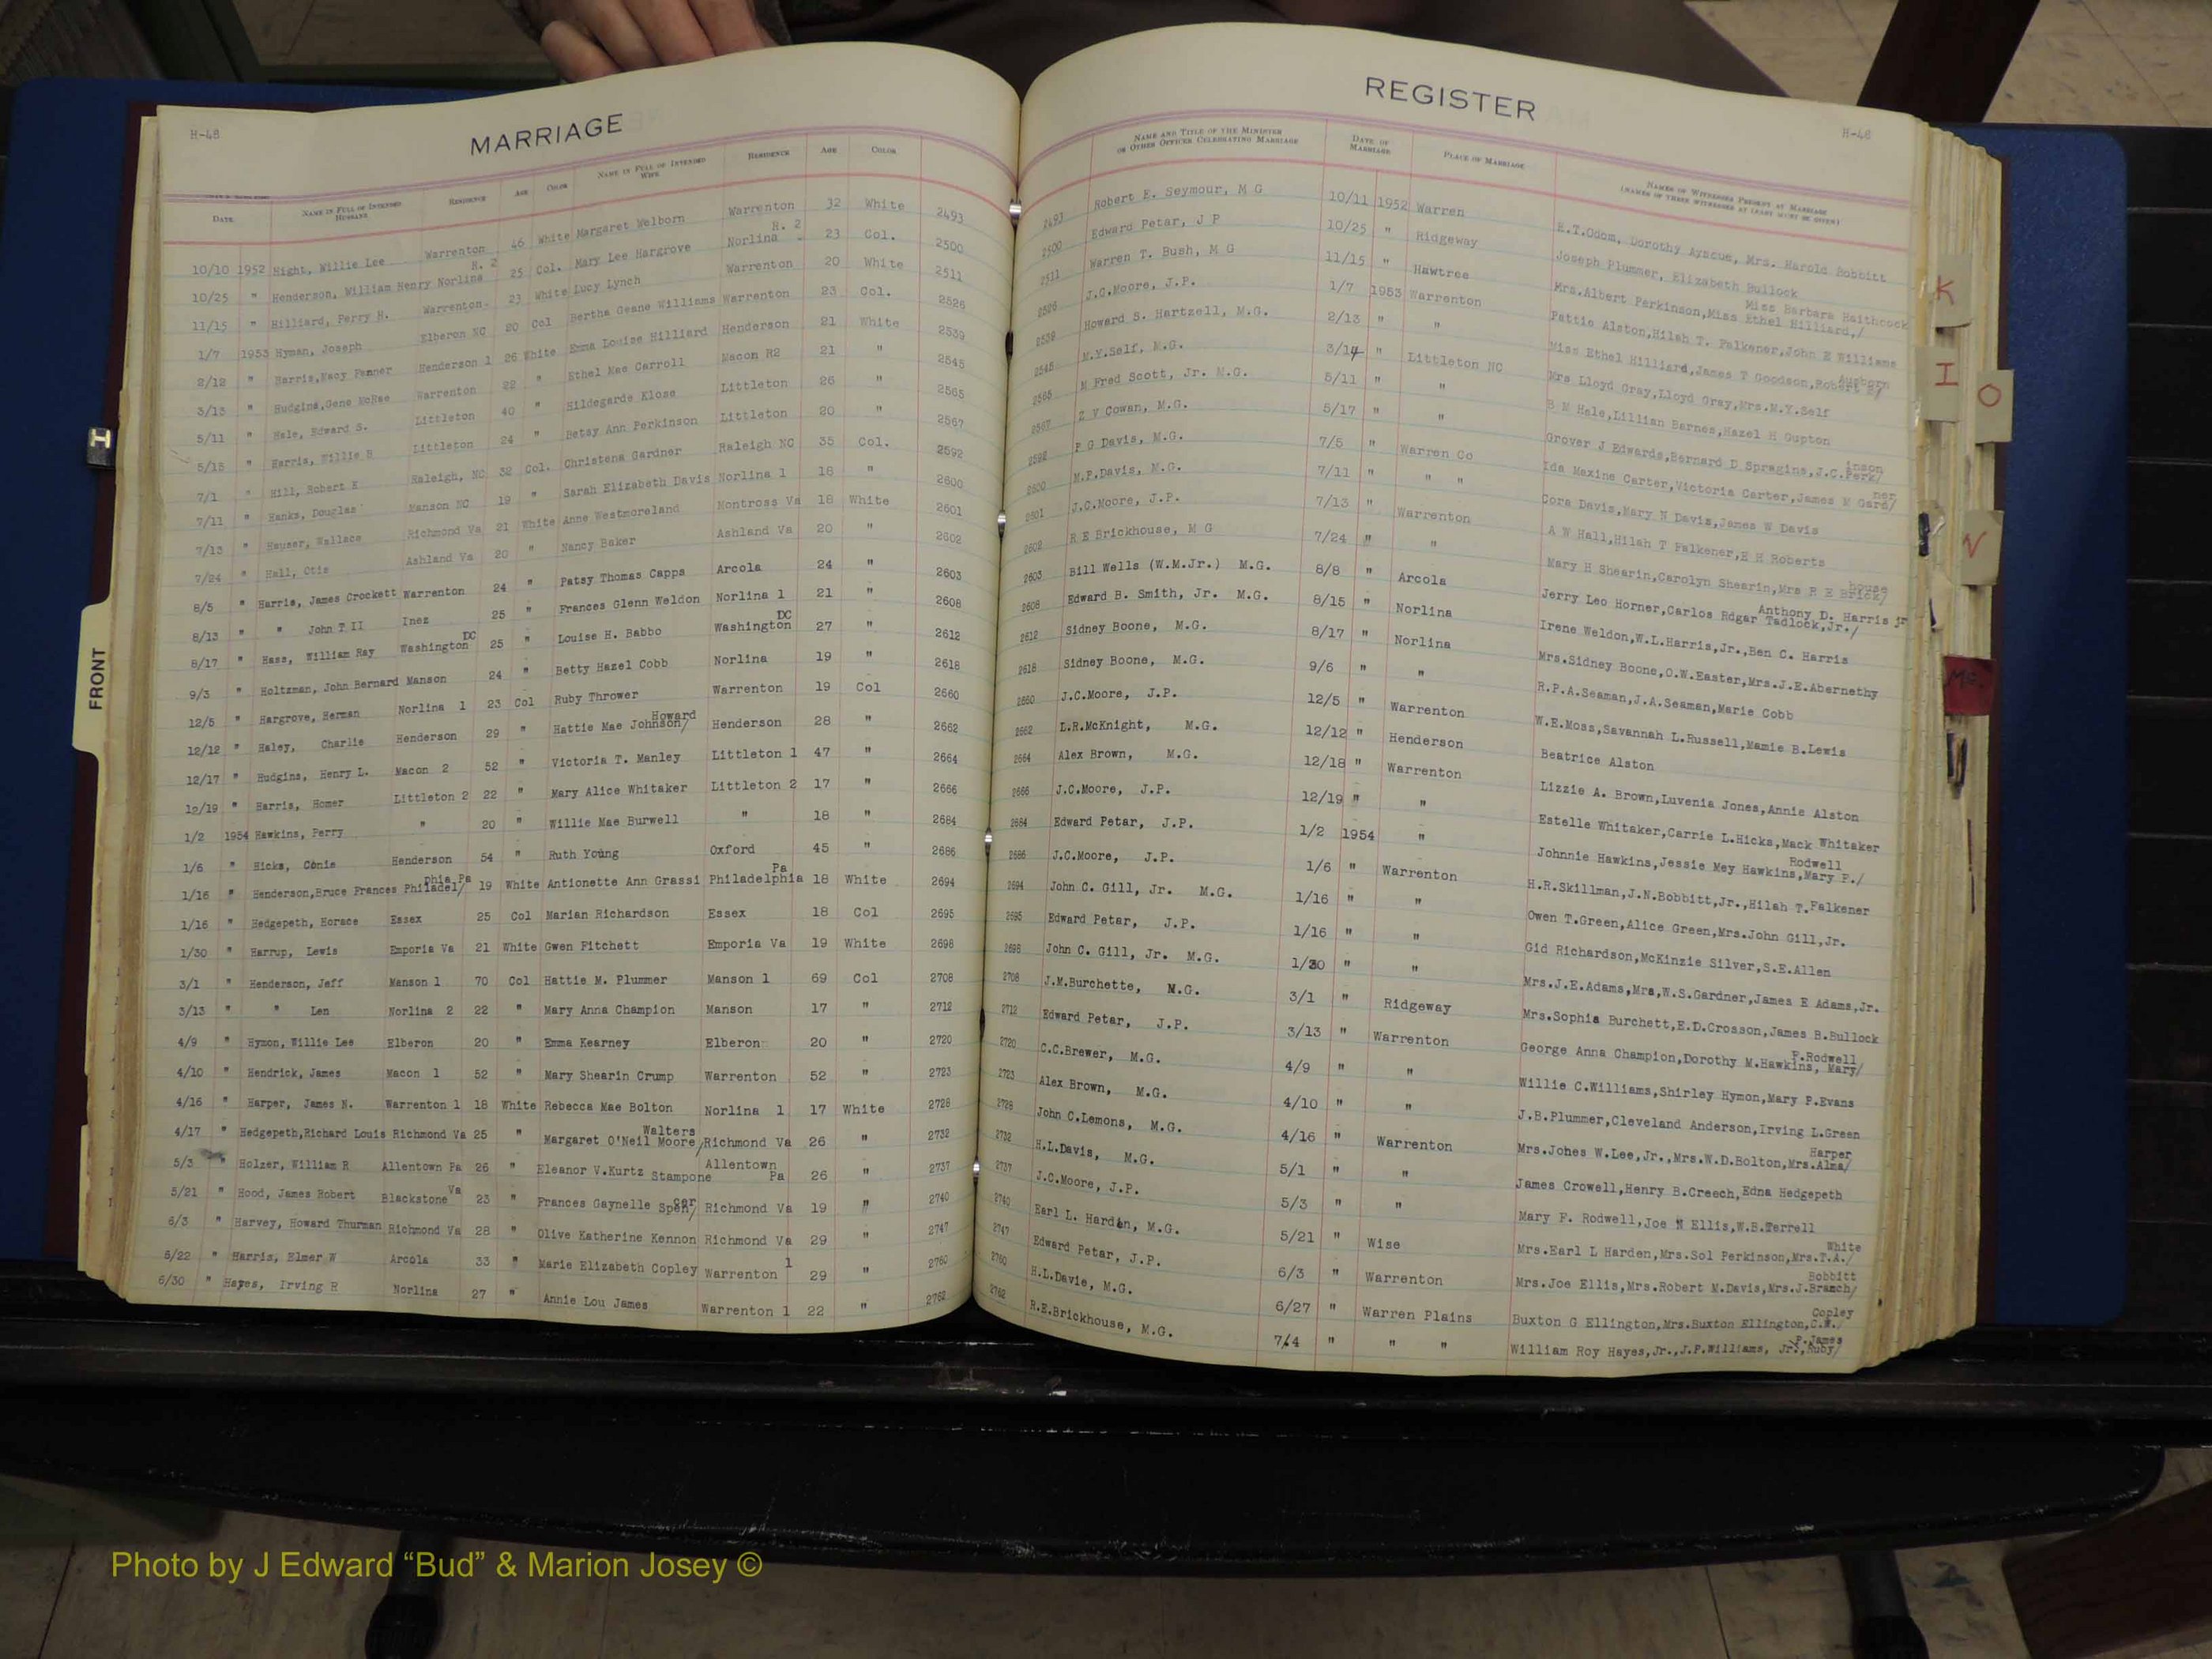 H-48
MARRIAGE
DATE NAME IN FULL OF INTENDED HUSBAND RESIDENCE AGE COLOR NAME IN FULL OF INTENDED WIFE RESIDENCE AGE COLOR
10/10 1952 Hight, Willie Lee Warrenton 46 White Margaret Welborn Warrenton 32 White 2493
10/25 " Henderson, William Henry Norlina R. 2 25 Col. Mary Lee Hargrove Norlina R. 2 23 Col. 2500
11/15 " Hilliard, Perry H. Warrenton 23 White Lucy Lynch Warrenton 20 White 2511
1/7 1953 Hyman, Joseph Elberon NC 20 Col Bertha Geane Williams Warrenton 23 Col. 2526
2/12 " Harris,Macy Fenner Henderson 1 26 White Emma Louise Hilliard Henderson 21 White 2539
3/13 " Hudgins,Gene McRae Warrenton 22 " Ethel Mae Carroll Macon R2 21 " 2545
5/11 " Hale, Edward S. Littleton 40 " Hildegarde Klose Littleton 26 " 2565
5/15 " Harris, Willie B Littleton 24 " Betsy Ann Perkinson Littleton 20 " 2567
7/1 " Hill, Robert E Raleigh, NC 32 Col. Christena Gardner Raleigh NC 35 Col. 2592
7/11 " Hanks, Douglas Manson NC 19 " Sarah Elizabeth Davis Norlina 1 18 " 2600
7/13 " Hauser, Wallace Richmond Va 21 White Anne Westmoreland Montross Va 18 White 2601
7/24 " Hall, Otis Ashland Va 20 " Nancy Baker Ashland Va 20 " 2602
8/5 " Harris, James Crockett Warrenton 24 " Patsy Thomas Capps Arcola 24 " 2603
8/13 " " John T II Inez 25 " Frances Glenn Weldon Norlina 1 21 " 2608
8/17 " Hass, William Ray Washington DC 25 " Louise H. Babbo Washington DC 27 " 2612
9/3 " Holtzman, John Bernard Manson 24 " Betty Hazel Cobb Norlina 19 " 2618
12/5 " Hargrove, Herman Norlina 1 23 Col Ruby Thrower Warrenton 19 Col 2660
12/12 " Haley, Charlie Henderson 29 " Hattie Mae Johnson/ Howard Henderson 28 " 2662
12/17 " Hudgins, Henry L. Macon 2 52 " Victoria T. Manley Littleton 1 47 " 2664
12/19 " Harris, Homer Littleton 2 22 " Mary Alice Whitaker Littleton 2 17 " 2666
1/2 1954 Hawkins, Perry " 20 " Willie Mae Burwell " 18 " 2684
1/6 " Hicks, Conie Henderson 54 " Ruth Young Oxford 45 " 2686
1/16 " Henderson,Bruce Frances Philadel/phia Pa 19 White Antionette Ann Grassi Philadelphia Pa 18 White 2694
1/16 " Hedgepeth, Horace Essex 25 Col Marian Richardson Essex 18 Col 2695
1/30 " Harrup, Lewis Emporia Va 21 White Gwen Fitchett Emporia Va 19 White 2698
3/1 " Henderson, Jeff Manson 1 70 Col Hattie M. Plummer Manson 1 69 Col 2708
3/13 " " Len Norlina 2 22 " Mary Anna Champion Manson 17 " 2712
4/9 " Hymon, Willie Lee Elberon 20 " Emma Kearney Elberon 20 " 2720
4/10 " Hendrick, James Macon 1 52 " Mary Shearin Crump Warrenton 52 " 2723
4/16 " Harper, James N. Warrenton 1 18 White Rebecca Mae Bolton Norlina 1 17 White 2728
4/17 " Hedgepeth,Richard Louis Richmond Va 25 " Margaret O'Neil Moore/ Walters Richmond Va 26 " 2732
5/3 " Holzer, William R Allentown Pa 26 " Eleanor V.Kurtz Stampone Allentown Pa 26 " 2737
5/21 " Hood, James Robert Blackstone Va 23 " Frances Gaynelle Spen/cer Richmond Va 19 " 2740
6/3 " Harvey, Howard Thurman Richmond Va 28 " Olive Katherine Kennon Richmond Va 29 " 2747
6/22 " Harris, Elmer W Arcola 33 " Marie Elizabeth Copley Warrenton 1 29 " 2760
6/30 " Hayes, Irving R Norlina 27 " Annie Lou James Warrenton 1 22 " 2762
REGISTER
H-48
NAME AND TITLE OF THE MINISTER OR OTHER OFFICER CELEBRATING MARRIAGE DATE OF MARRIAGE PLACE OF MARRIAGE NAMES OF WITNESSES PRESENT AT MARRIAGE (NAMES OF THREE WITNESSES AT LEAST MUST BE GIVEN)
2493 Robert E. Seymour, M G 10/11 1952 Warren R.T.Odom, Dorothy Ayscue, Mrs. Harold Bobbitt
2500 Edward Petar, J P 10/25 " Ridgeway Joseph Plummer, Elizabeth Bullock
2511 Warren T. Bush, M G 11/15 " Hawtree Mrs.Albert Perkinson,Miss Ethel Hilliard,/ Miss Barbara Haithcock
2526 J.C.Moore, J.P. 1/7 1953 Warrenton Pattie Alston,Hilah T. Falkener,John E Williams
2539 Howard S. Hartzell, M.G. 2/13 " " Miss Ethel Hilliard,James T Goodson,Robert B/ Ausborn
2545 M.Y.Self, M.G. 3/14 " Littleton NC Mrs Lloyd Gray,Lloyd Gray,Mrs.M.Y.Self
2565 M Fred Scott, Jr. M.G. 5/11 " " B M Hale,Lillian Barnes,Hazel H Gupton
2567 Z V Cowan, M.G. 5/17 " " Grover J Edwards,Bernard D Spragins,J.C.Perk/inson
2592 P G Davis, M.G. 7/5 " Warren Co Ida Maxine Carter,Victoria Carter,James M Gard/ner
2600 M.P.Davis, M.G. 7/11 " " " Cora Davis,Mary N Davis,James W Davis
2601 J.C.Moore, J.P. 7/13 " Warrenton A W Hall,Hilah T Falkener,E H Roberts
2602 R E Brickhouse, M G 7/24 " " Mary H Shearin,Carolyn Shearin,Mrs R E Brick/house
2603 Bill Wells (W.M.Jr.) M.G. 8/8 " Arcola Jerry Leo Horner,Carlos Rdgar Tadlock,Jr./ Anthony D. Harris jr
2608 Edward B. Smith, Jr. M.G. 8/15 " Norlina Irene Weldon,W.L.Harris,Jr.,Ben C. Harris
2612 Sidney Boone, M.G. 8/17 " Norlina Mrs.Sidney Boone,O.W.Easter,Mrs.J.E.Abernethy
2618 Sidney Boone, M.G. 9/6 " " R.P.A.Seaman,J.A.Seaman,Marie Cobb
2660 J.C.Moore, J.P. 12/5 " Warrenton W.E.Moss,Savannah L.Russell,Mamie B.Lewis
2662 L.R.McKnight, M.G. 12/12 " Henderson Beatrice Alston
2664 Alex Brown, M.G. 12/18 " Warrenton Lizzie A. Brown,Luvenia Jones,Annie Alston
2666 J.C.Moore, J.P. 12/19 " " Estelle Whitaker,Carrie L.Hicks,Mack Whitaker
2684 Edward Petar, J.P. 1/2 1954 " Johnnie Hawkins,Jessie Mey Hawkins,Mary P./ Rodwell
2686 J.C.Moore, J.P. 1/6 " Warrenton H.R.Skillman,J.N.Bobbitt,Jr.,Hilah T.Falkener
2694 John C. Gill, Jr. M.G. 1/16 " " Owen T.Green,Alice Green,Mrs.John Gill,Jr.
2695 Edward Petar, J.P. 1/16 " " Gid Richardson,McKinzie Silver,S.E.Allen
2698 John C. Gill, Jr. M.G. 1/30 " " Mrs.J.E.Adams,Mrs,W.S.Gardner,James E Adams,Jr.
2708 J.M.Burchette, M.G. 3/1 " Ridgeway Mrs.Sophia Burchett,E.D.Crosson,James B.Bullock
2712 Edward Petar, J.P. 3/13 " Warrenton George Anna Champion,Dorothy M.Hawkins, Mary/ P.Rodwell
2720 C.C.Brewer, M.G. 4/9 " " Willie C.Williams,Shirley Hymon,Mary P.Evans
2723 Alex Brown, M.G. 4/10 " " J.B.Plummer,Cleveland Anderson,Irving L.Green
2728 John C.Lemons, M.G. 4/16 " Warrenton Mrs.Johes W.Lee,Jr.,Mrs.W.D.Bolton,Mrs.Alma/ Harper
2732 H.L.Davis, M.G. 5/1 " " James Crowell,Henry B.Creech,Edna Hedgepeth
2737 J.C.Moore, J.P. 5/3 " " Mary F. Rodwell,Joe N Ellis,W.B.Terrell
2740 Earl L. Harden, M.G. 5/21 " Wise Mrs.Earl L Harden,Mrs.Sol Perkinson,Mrs.T.A./ White
2747 Edward Petar, J.P. 6/3 " Warrenton Mrs.Joe Ellis,Mrs.Robert M.Davis,Mrs.J.Branch/ Bobbitt
2760 H.L.Davie, M.G. 6/27 " Warren Plains Buxton G Ellington,Mrs.Buxton Ellington,C.W./ Copley
2762 R.E.Brickhouse, M.G. 7/4 " " " William Roy Hayes,Jr.,J.P.Williams, Jr.,Ruby/ P.James
FRONT
H
K
I
O
N
Mc.
Photo by J Edward “Bud” & Marion Josey ©